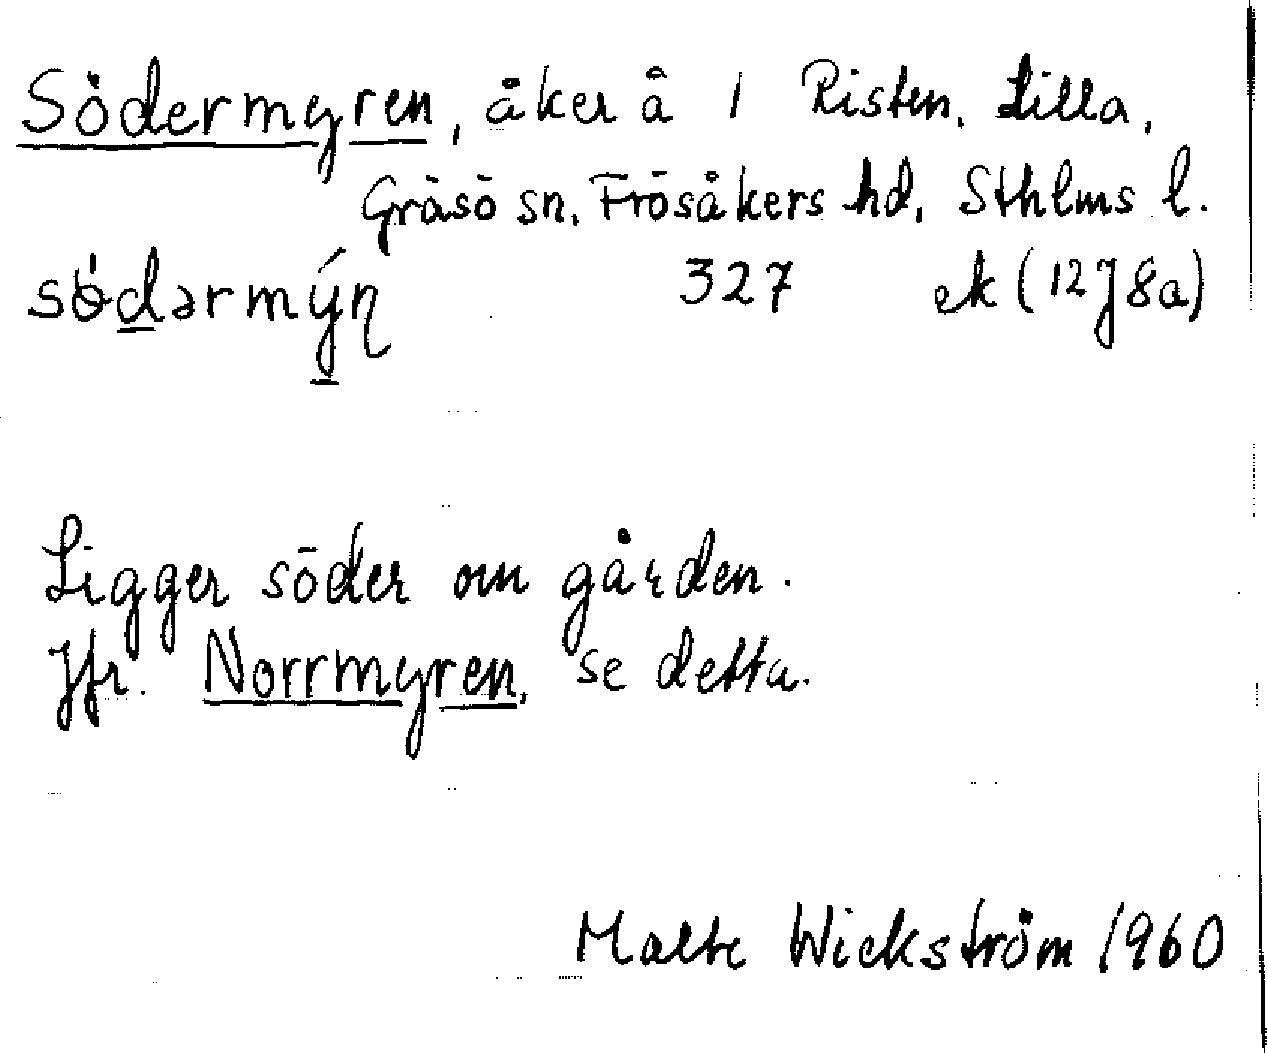 Södermyren, åker å 1 Risten, Lilla,
Gräsö sn, Frösåkers hd, Sthlms l.
södərmýn 327 ek (12J8a)
Ligger söder om gården.
Jfr. Norrmyren, se detta.
Malte Wickström 1960